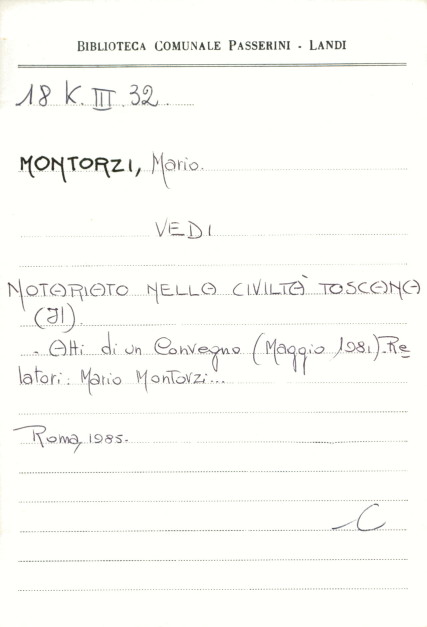 BIBLIOTECA COMUNALE PASSERINI - LANDI
18 K. III. 32.
MONTORZI, Mario.
VEDI
NOTARIATO NELLA CIVILTÀ TOSCANA
(Il).
- Atti di un Convegno (Maggio 1981). Re
latori: Mario Montorzi...
Roma, 1985.
C